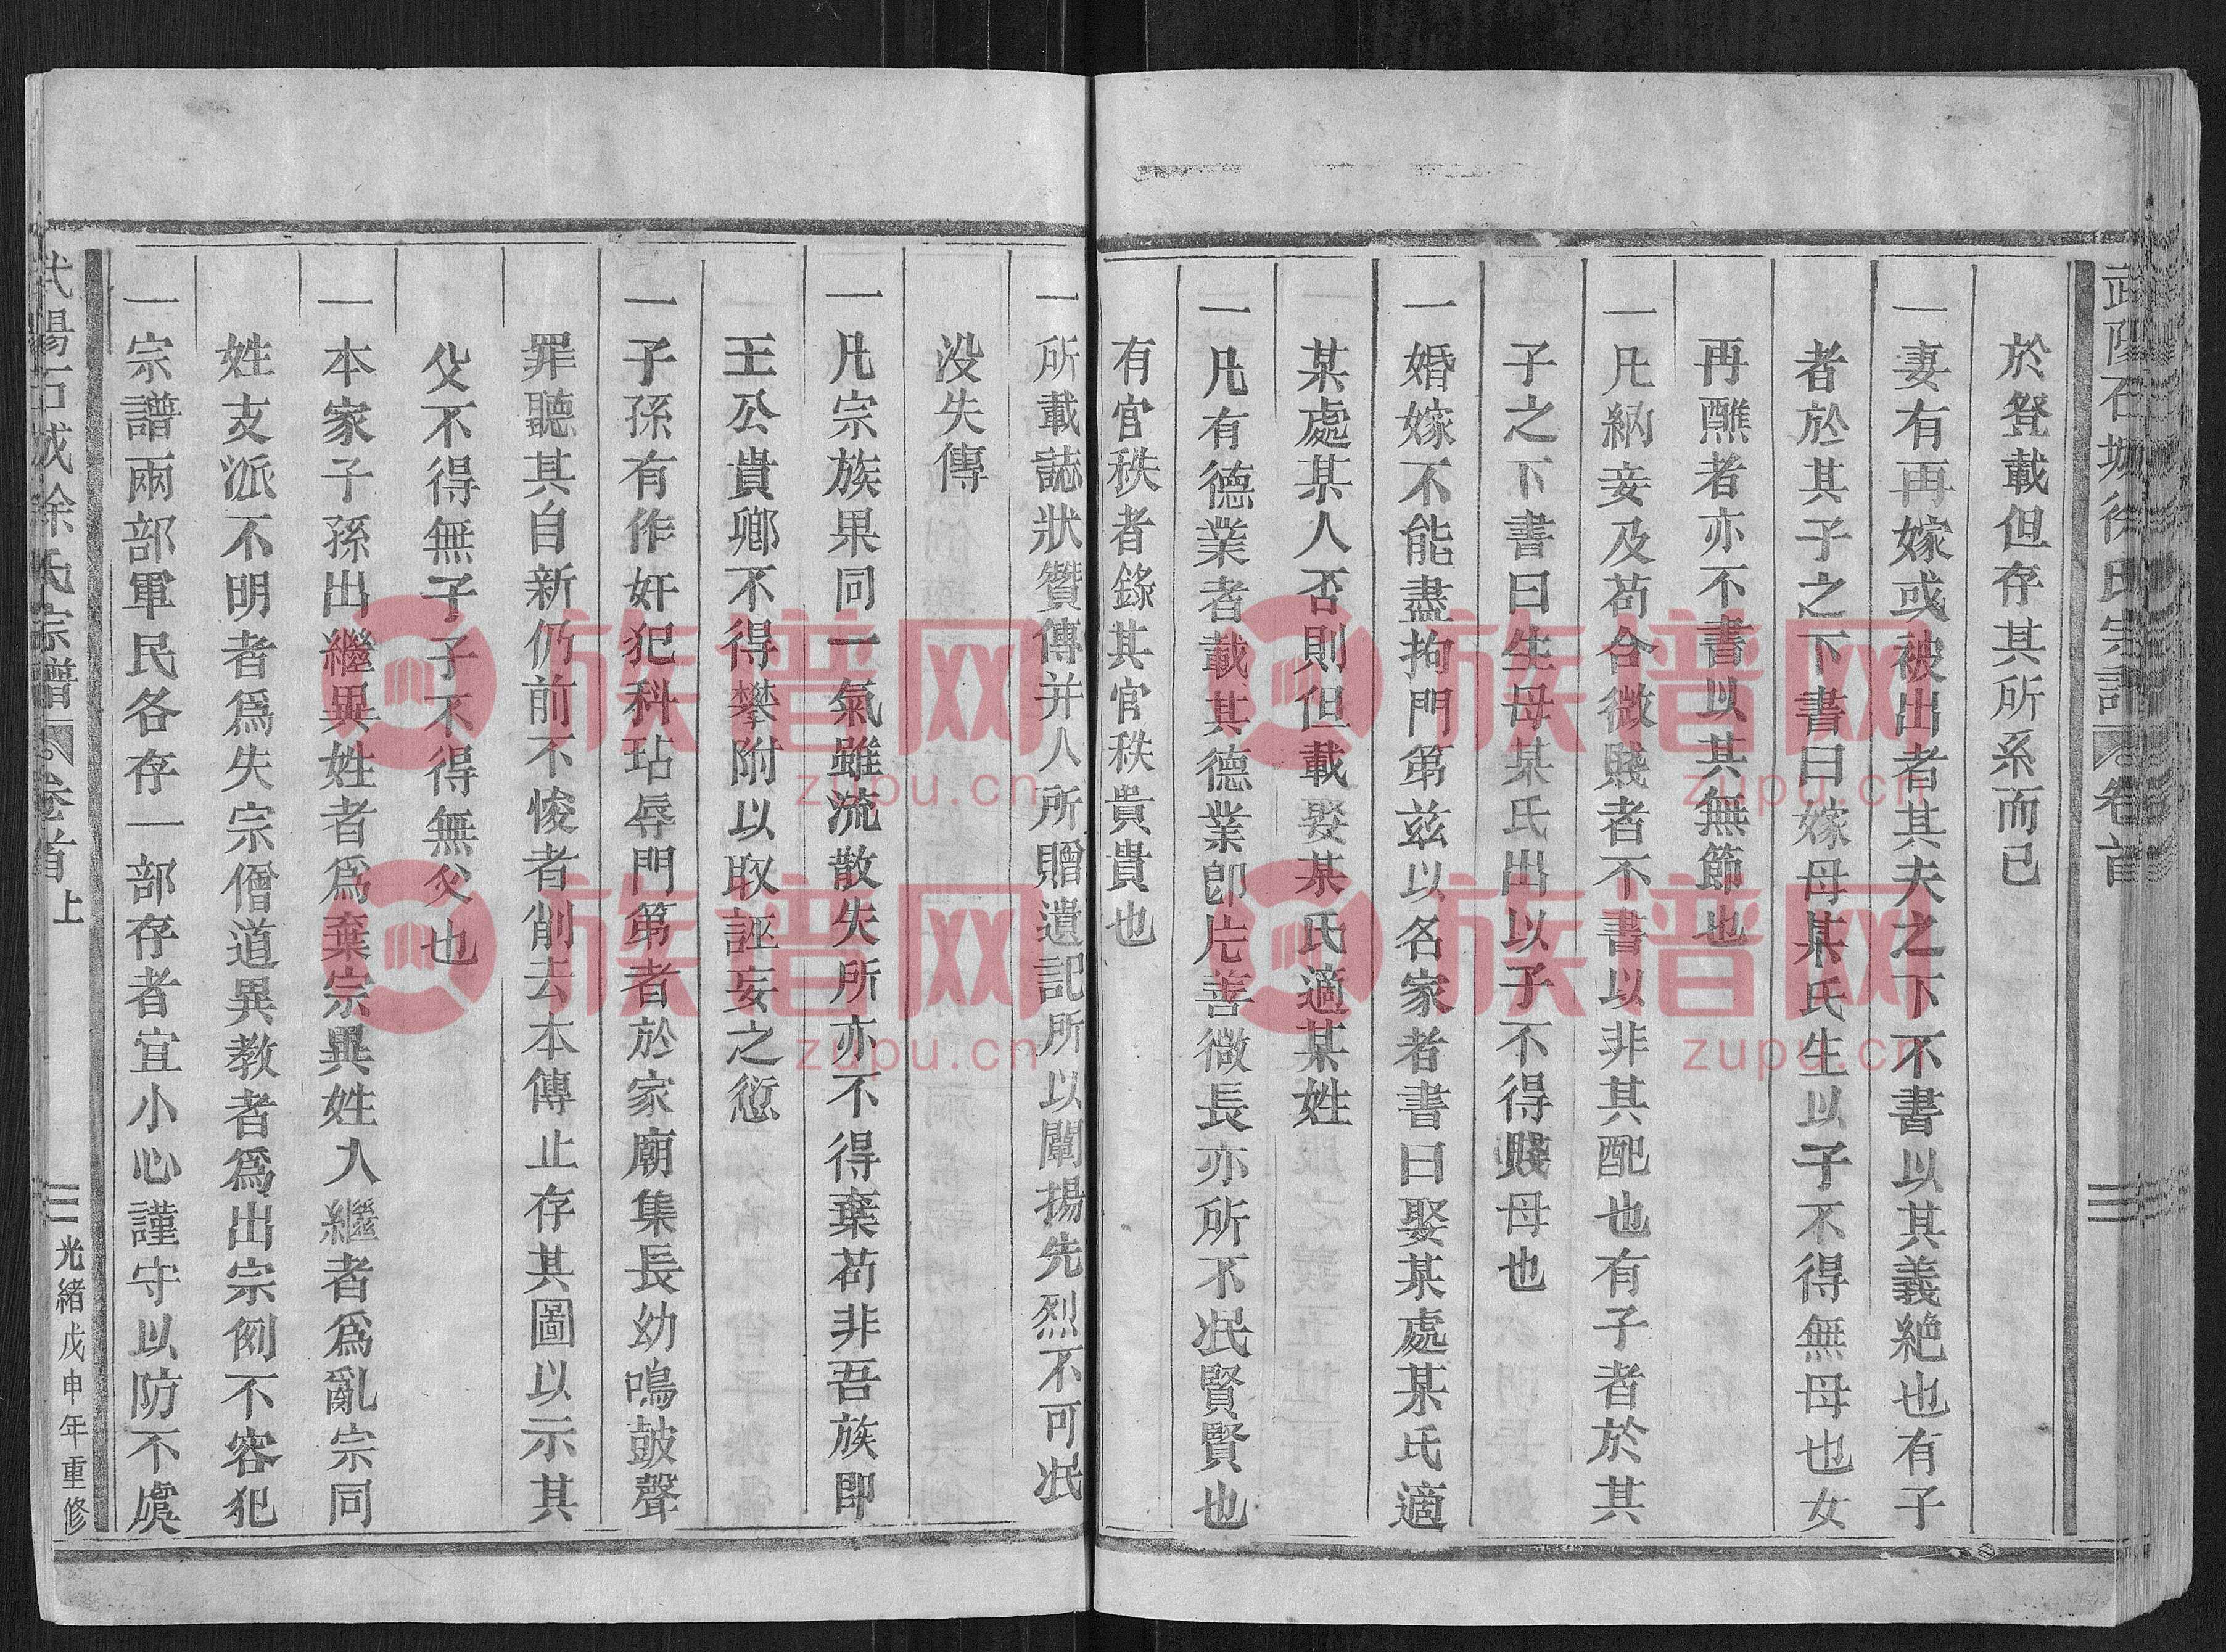 於登載但存其所系而已
一妻有再嫁或被出者其夫之下不書以其義絕也有子
者於其子之下書曰嫁母某氏生以子不得無母也女
再醮者亦不書以其無節也
一凡納妾及苟合微賤者不書以非其配也有子者於其
子之下書曰生母某氏出以子不得賤母也
一婚嫁不能盡拘門第兹以名家者書曰娶某處某氏適
某處某人否則但載娶某氏適某姓
一凡有德業者載其德業卽片善微長亦所不泯賢賢也
有官秩者錄其官秩貴貴也
一所載誌狀贊傳并人所贈遺記所以闡揚先烈不可泯
没失傳
一凡宗族果同一氣雖流散失所亦不得棄苟非吾族即
王公貴鄉不得攀附以取誣妄之愆
一子孫有作奸犯科玷辱門第者於家廟集長幼鳴鼓聲
罪聽其自新仍前不悛者削去本傳止存其圖以示其
父不得無子子不得無父也
一本家子孫出繼異姓者爲棄宗異姓入繼者爲亂宗同
姓支派不明者爲失宗僧道異教者爲出宗例不容犯
一宗譜兩部軍民各存一部存者宜小心謹守以防不虞
武陽石城徐氏宗譜 卷首上 二 光緒戊申年重修
族譜网
zupu.cn